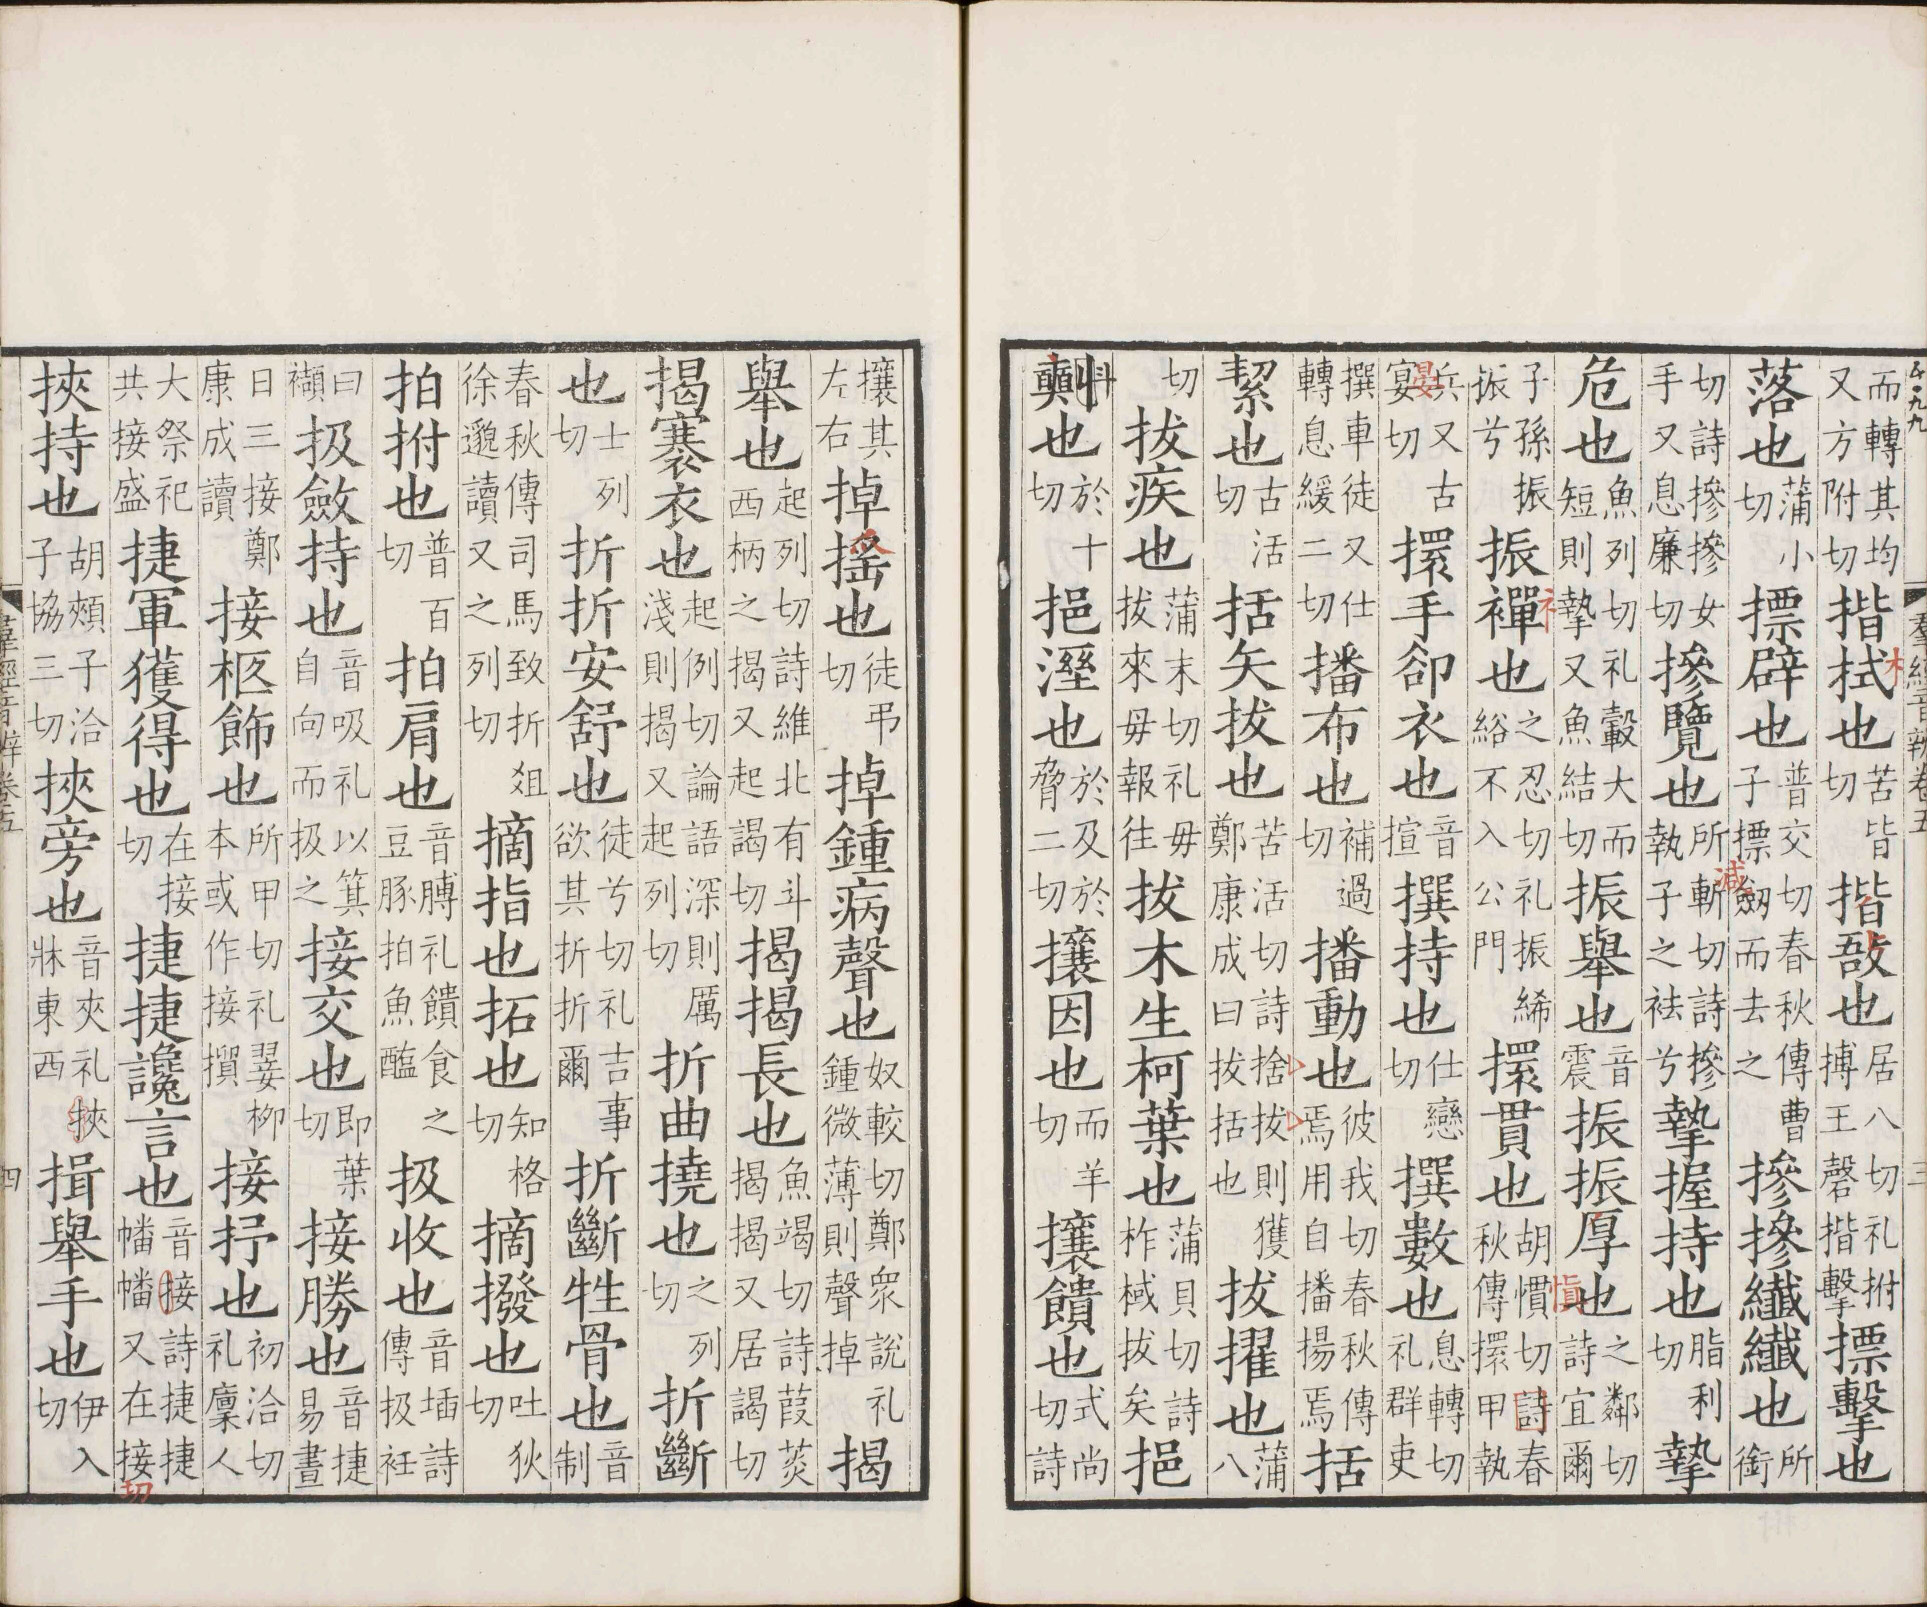 而轉其均又方附切揩拭也苦皆切揩敔也居八切礼拊搏王磬揩擊摽擊也
落也蒲小切摽辟也普交切春秋傳曹子摽劒而去之摻摻纖纖也所銜
切詩摻摻女手又息廉切摻覽也所斬切詩摻執子之袪兮摯握持也脂利切摯
危也魚列切礼轂大而短則摯又魚結切振舉也音震振振厚也之鄰切詩宜爾
子孫振振兮振襌也之忍切礼振絺綌不入公門擐貫也胡慣切詩春秋傳擐甲執
兵又古宴切擐手卻衣也音揎撰持也仕戀切撰數也息轉切礼群吏
撰車徒又仕轉息緩二切播布也補過切播動也彼我切春秋傳焉用自播揚焉括
絜也古活切括矢拔也苦活切詩捨拔則獲鄭康成曰拔括也拔擢也蒲八
切拔疾也蒲末切礼毋拔來毋報往拔木生柯葉也蒲貝切詩柞棫拔矣挹
㪺也於十切挹溼也於及於脅二切攘因也而羊切攘饋也式尚切詩
攘其左右掉搖也徒弔切掉鍾病聲也奴較切鄭衆說礼鍾微薄則聲掉揭
舉也起列切詩維北有斗西柄之揭又起謁切揭揭長也魚竭切詩葭菼揭揭又居謁切
揭褰衣也起例切論語深則厲淺則揭又起列切折曲撓也之列切折斷
也士列切折折安舒也徒兮切礼吉事欲其折折爾折斷牲骨也音制
春秋傳司馬致折俎徐邈讀又之列切摘指也拓也知格切摘撥也吐狄切
拍拊也普百切拍肩也音膊礼饋食之豆豚拍魚醢扱收也音插詩傳扱衽
曰襭扱斂持也音吸礼以箕自向而扱之接交也即葉切接勝也音捷易晝
日三接鄭康成讀接柩飾也所甲切礼翣柳本或作接搵接抒也初洽切礼廩人
大祭祀共接盛捷軍獲得也在接切捷捷讒言也音接詩捷捷幡幡又在接切
挾持也胡頰子洽子協三切挾旁也音夾礼挾牀東西揖舉手也伊入切